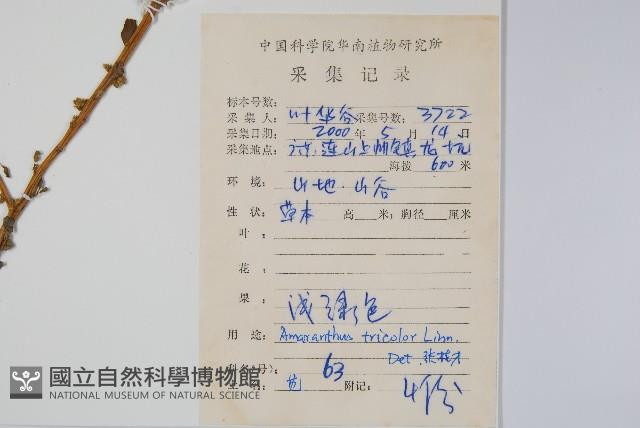 中国科学院华南植物研究所
采集记录
标本号数:
采集人: 叶华谷 采集号数: 3722
采集日期: 2000年 5月 14日
采集地点: 连山上帅镇
海拨 600 米
环境: 山地.山谷
性状: 草本 高 米; 胸径 厘米
叶:
花:
果: 浅绿色
用途: Amaranthus tricolor Linn.
Det.
63
附记: 4份
國立自然科學博物館
NATIONAL MUSEUM OF NATURAL SCIENCE